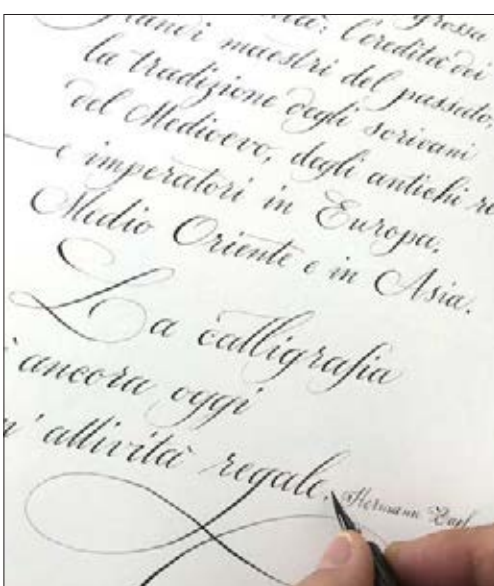 grossa
l'eredità dei
grandi maestri del passato,
la tradizione degli scrivani
del Medioevo, degli antichi re
e imperatori in Europa,
Medio Oriente e in Asia.
La calligrafia
è ancora oggi
un'attività regale.
Hermann Zapf